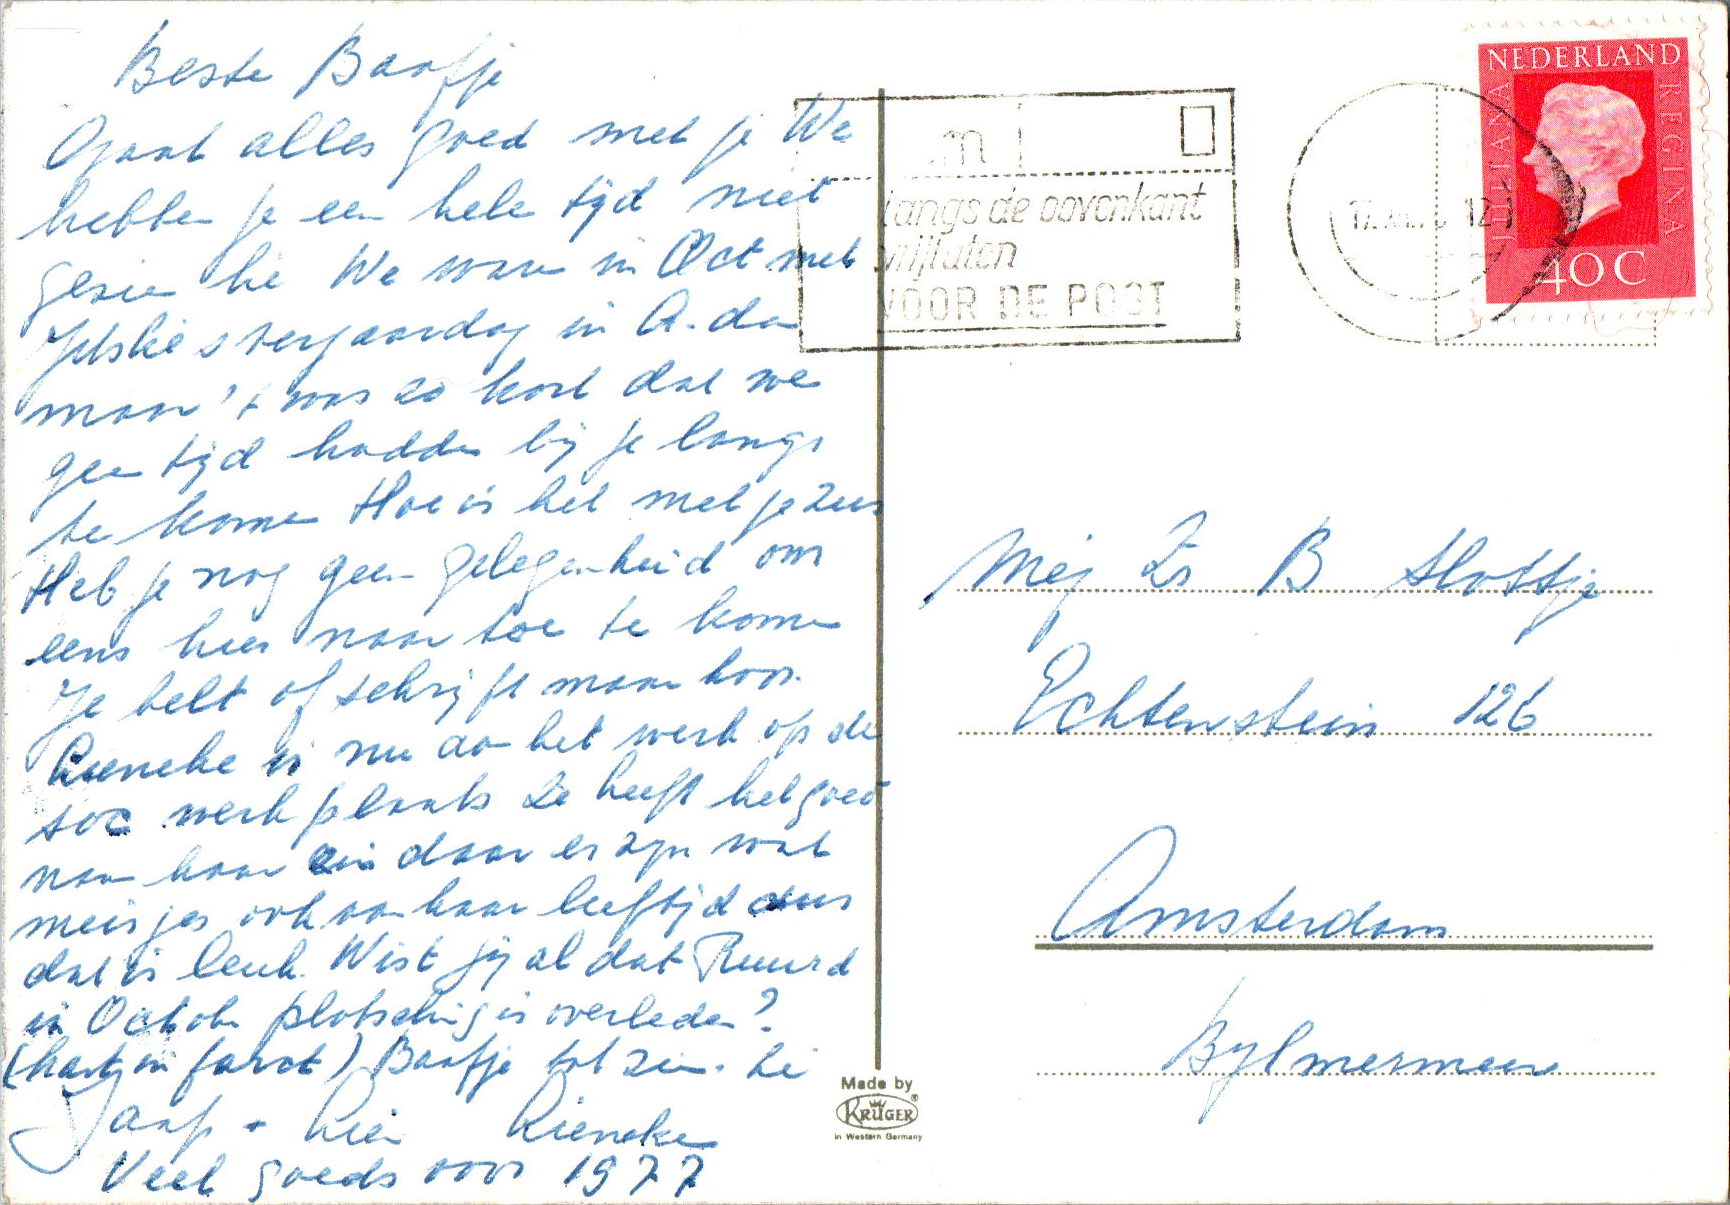 Beste Baafje
Gaat alles goed met je We
hebben je een hele tijd niet
gezien hè We waren in Oct met
Jetskes verjaardag in A.dam
maar 't was zo kort dat we
geen tijd hadden bij je langs
te komen Hoe is het met je zus
Heb je nog geen gelegenheid om
eens hier naar toe te komen
Je belt of schrijft maar hoor.
Rieneke is nu aan het werk op de
soc werkplaats Ze heeft het goed
naar haar zin daar er zijn wat
meisjes ook van haar leeftijd dus
dat is leuk. Wist jij al dat Ruurd
in October plotseling is overleden?
(hart in farct) Baafje tot ziens. hè
Jaap + Rieneke
Veel goeds voor 1977
langs de bovenkant
VOOR DE POST
NEDERLAND
JULIANA
REGINA
40 C
Mej Zr B Slottje
Echtenstein 126
Amsterdam
Bylmermeer
Made by
KRÜGER
in Western Germany